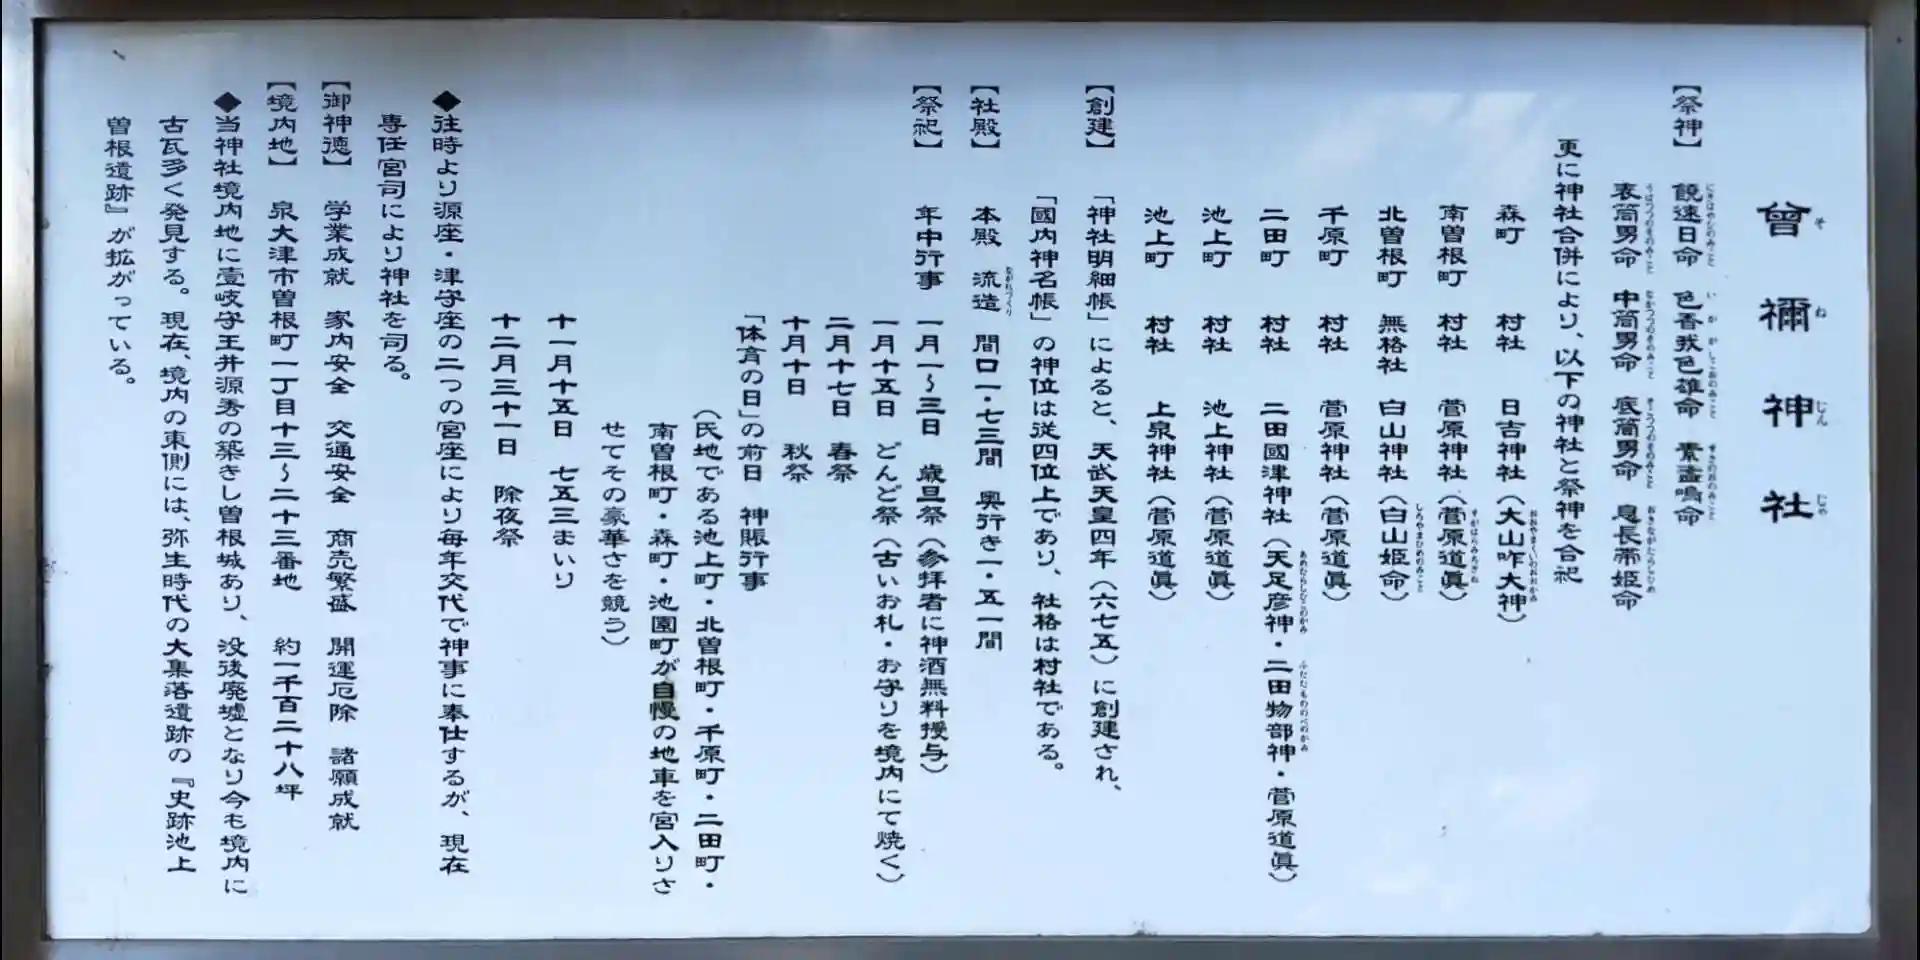 曾禰神社
【祭神】 饒速日命 色香我色雄命 素盞嗚命
表筒男命 中筒男命 底筒男命 息長帯姫命
更に神社合併により、以下の神社と祭神を合祀
森町 村社 日吉神社（大山咋大神）
南曽根町 村社 菅原神社（菅原道眞）
北曽根町 無格社 白山神社（白山姫命）
千原町 村社 菅原神社（菅原道眞）
二田町 村社 二田國津神社（天足彦神・二田物部神・菅原道眞）
池上町 村社 池上神社（菅原道眞）
池上町 村社 上泉神社（菅原道眞）
【創建】 「神社明細帳」によると、天武天皇四年（六七五）に創建され、
「國内神名帳」の神位は従四位上であり、社格は村社である。
【社殿】 本殿 流造 間口一・七三間 奥行き一・五一間
【祭祀】 年中行事 一月一～三日 歳旦祭（参拝者に神酒無料授与）
一月十五日 どんど祭（古いお札・お守りを境内にて焼く）
二月十七日 春祭
十月十日 秋祭
「体育の日」の前日 神賑行事
（氏地である池上町・北曽根町・千原町・二田町・
南曽根町・森町・池園町が自慢の地車を宮入りさ
せてその豪華さを競う）
十一月十五日 七五三まいり
十二月三十一日 除夜祭
◆往時より源座・津守座の二つの宮座により毎年交代で神事に奉仕するが、現在
専任宮司により神社を司る。
【御神徳】 学業成就 家内安全 交通安全 商売繁盛 開運厄除 諸願成就
【境内地】 泉大津市曽根町一丁目十三～二十三番地 約一千百二十八坪
◆当神社境内地に壹岐守王井源秀の築きし曽根城あり、没後廃墟となり今も境内に
古瓦多く発見する。現在、境内の東側には、弥生時代の大集落遺跡の『史跡池上
曽根遺跡』が拡がっている。